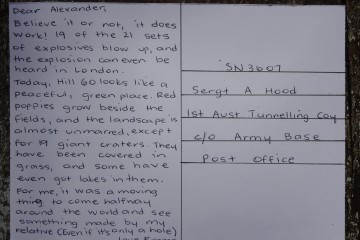 Dear Alexander,
Believe it or not, it does
work! 19 of the 21 sets
of explosives blow up, and
the explosion can even be
heard in London.
Today, Hill 60 looks like a
peaceful, green place. Red
poppies grow beside the
fields, and the landscape is
almost unmarred, except
for 19 giant craters. They
have been covered in
grass, and some have
even got lakes in them.
For me, it was a moving
thing to come halfway
around the world and see
something made by my
relative (Even if it's only a hole)
SN3607
Sergt A Hood
1st Aust Tunnelling Coy
c/o Army Base
Post Office